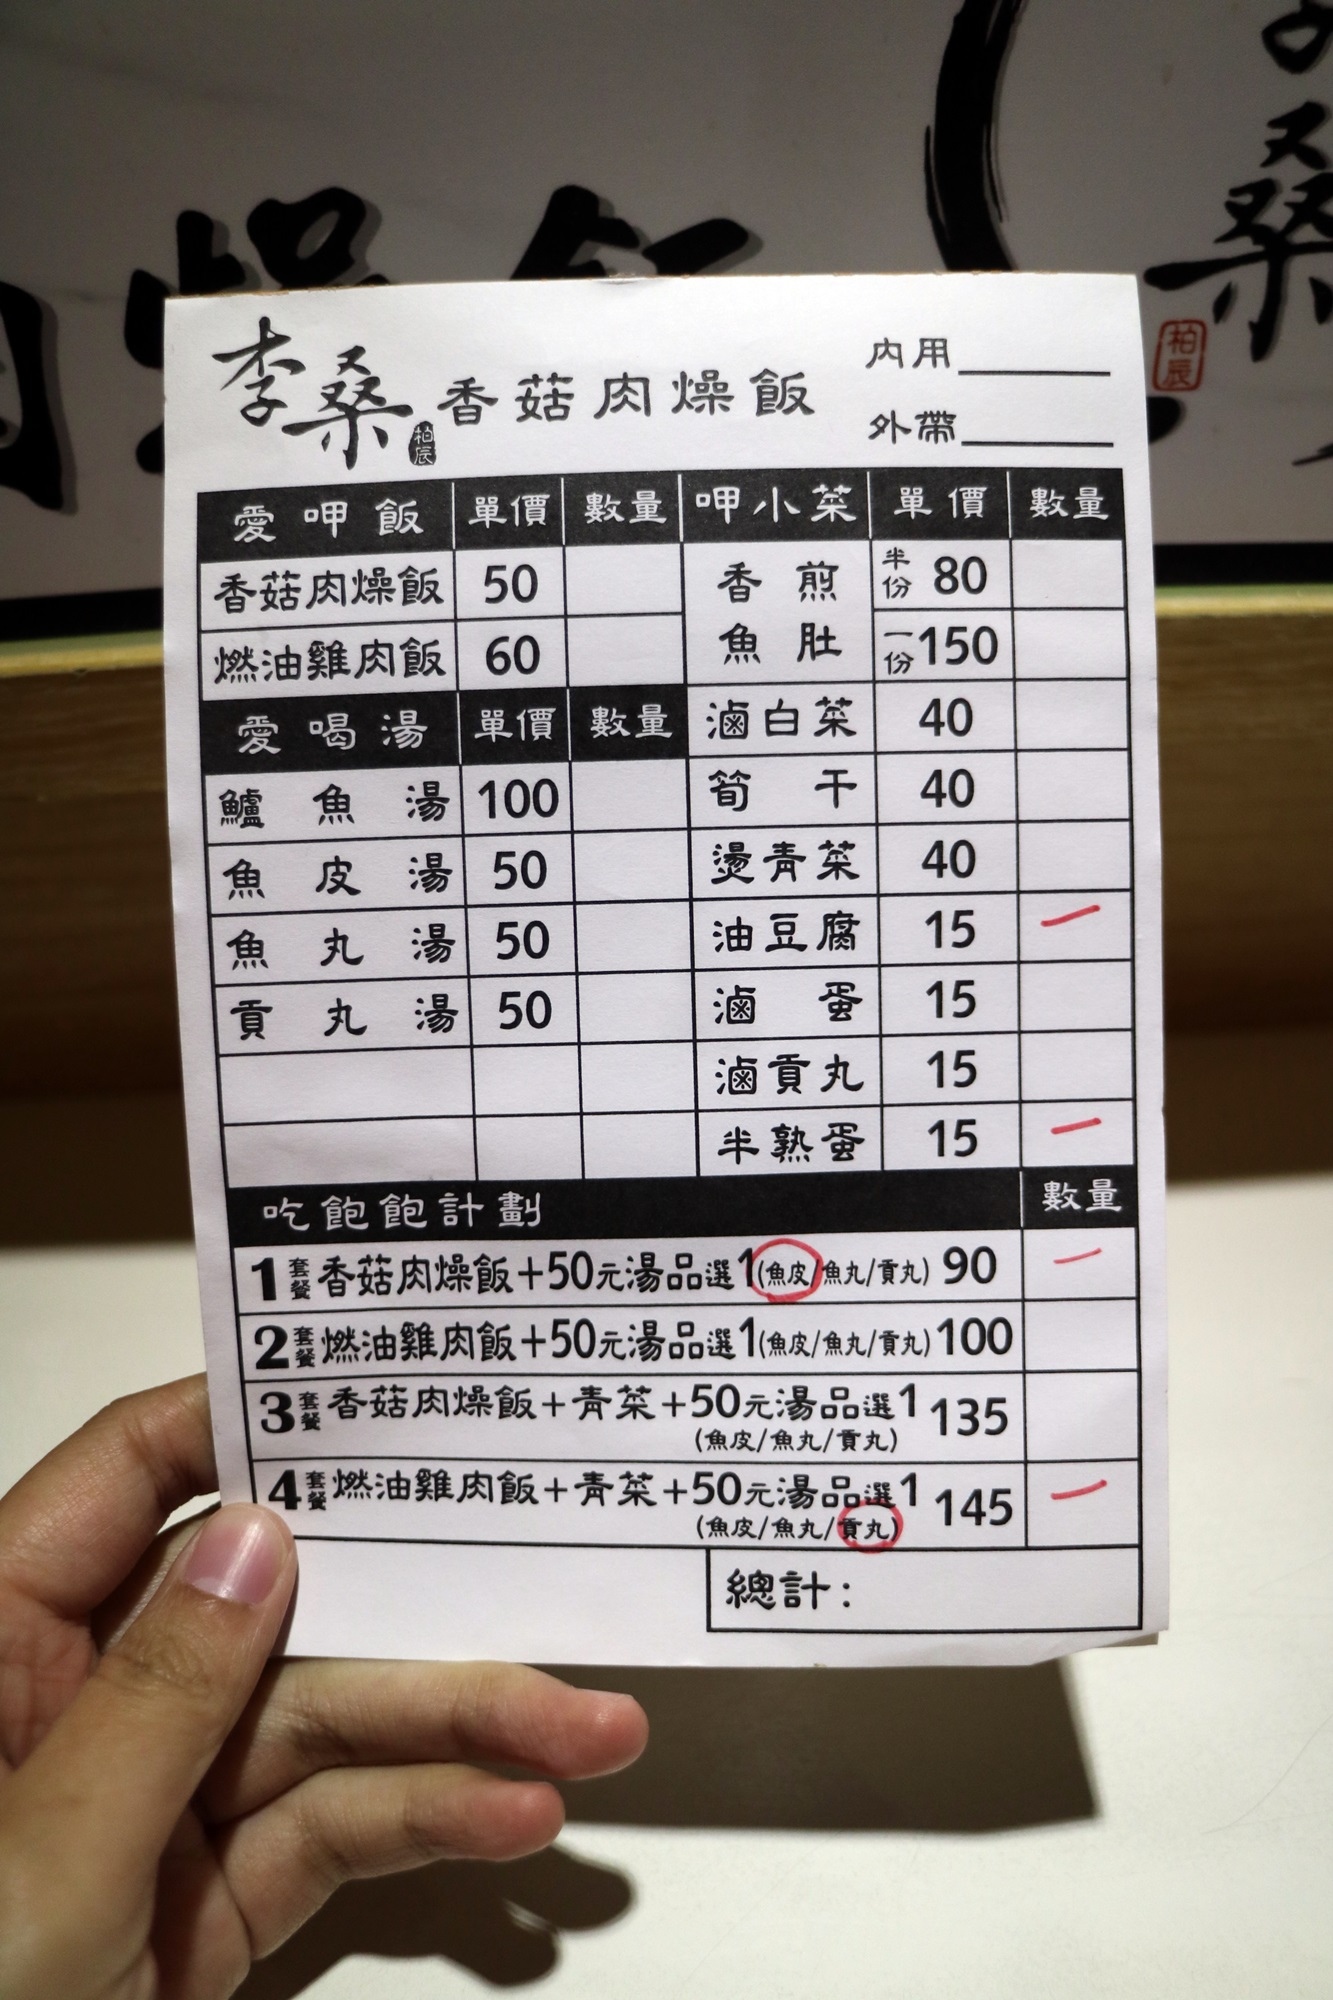 燥飯
桑
柏辰
李桑
柏辰
香菇肉燥飯
內用
外帶
愛呷飯 單價 數量 呷小菜 單價 數量
香菇肉燥飯 50 香煎魚肚 半份 80
燃油雞肉飯 60 一份 150
愛喝湯 單價 數量 滷白菜 40
鱸魚湯 100 筍干 40
魚皮湯 50 燙青菜 40
魚丸湯 50 油豆腐 15 一
貢丸湯 50 滷蛋 15
滷貢丸 15
半熟蛋 15 一
吃飽飽計劃 數量
1套餐 香菇肉燥飯+50元湯品選1(魚皮/魚丸/貢丸) 90 一
2套餐 燃油雞肉飯+50元湯品選1(魚皮/魚丸/貢丸) 100
3套餐 香菇肉燥飯+青菜+50元湯品選1 135
(魚皮/魚丸/貢丸)
4套餐 燃油雞肉飯+青菜+50元湯品選1 145 一
(魚皮/魚丸/貢丸)
總計: